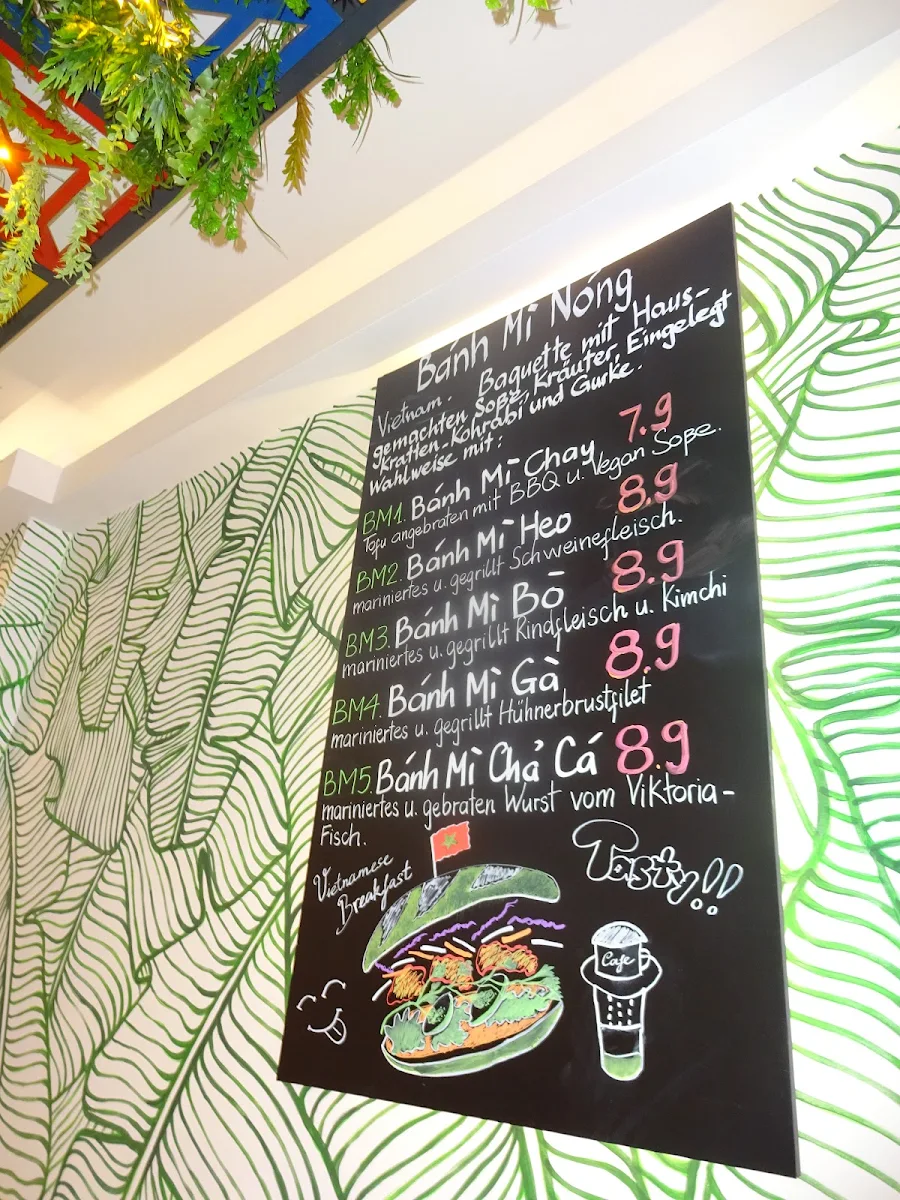 Bánh Mì Nóng
Vietnam. Baguette mit Haus-
gemachten Soße, Kräuter, Eingelegt
Kratten-Kohrabi und Gurke.
Wahlweise mit:
BM1. Bánh Mì Chay 7.9
Tofu angebraten mit BBQ u. Vegan Soße.
BM2. Bánh Mì Heo 8.9
mariniertes u. gegrillt Schweinefleisch.
BM3. Bánh Mì Bò 8.9
mariniertes u. gegrillt Rindfleisch u. Kimchi
BM4. Bánh Mì Gà 8.9
mariniertes u. gegrillt Hühnerbrustfilet
BM5. Bánh Mì Chả Cá 8.9
mariniertes u. gebraten Wurst vom Viktoria-
Fisch.
Vietnamese
Breakfast
Tasty!!
Cafe